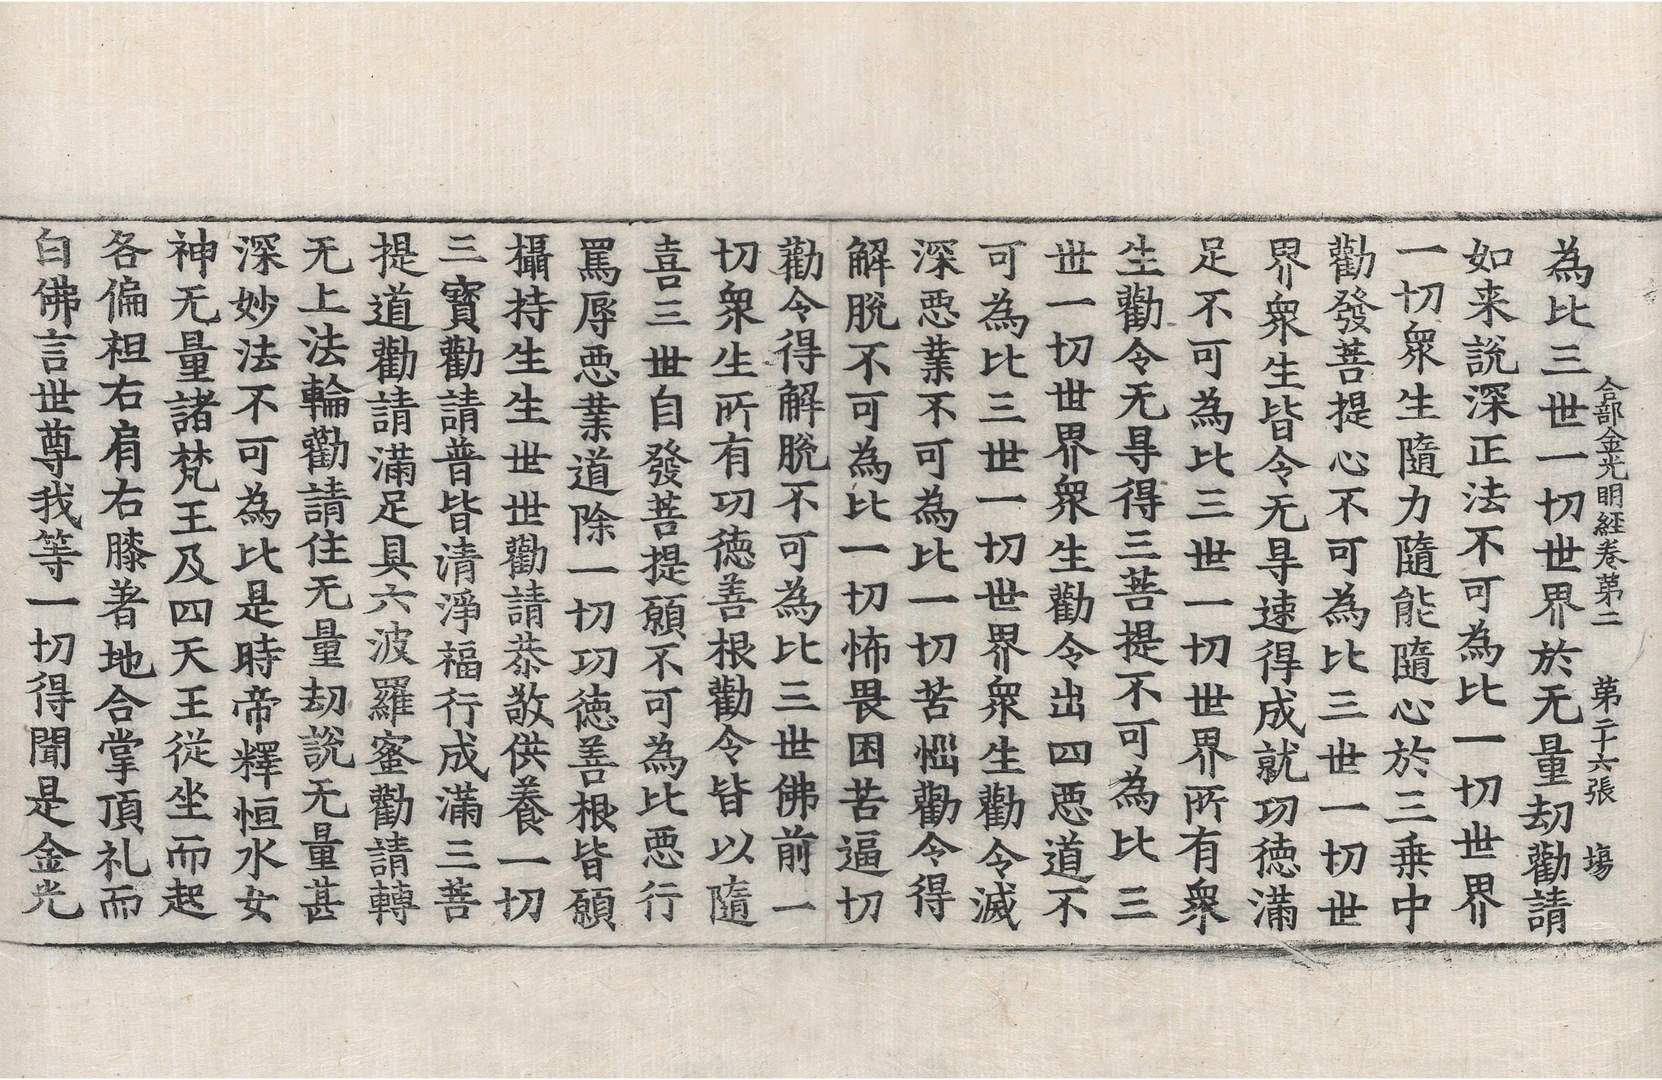 合部金光明經卷第二 第二十六張 塲
為比三世一切世界於无量劫勸請
如来說深正法不可為比一切世界
一切衆生隨力隨能隨心於三乗中
勸發菩提心不可為比三世一切世
界衆生皆令无㝵速得成就功徳滿
足不可為比三世一切世界所有衆
生勸令无㝵得三菩提不可為比三
世一切世界衆生勸令出四悪道不
可為比三世一切世界衆生勸令滅
深悪業不可為比一切苦惱勸令得
解脫不可為比一切怖畏困苦逼切
勸令得解脫不可為比三世佛前一
切衆生所有功徳善根勸令皆以隨
喜三世自發菩提願不可為比悪行
罵辱悪業道除一切功徳善根皆願
攝持生生世世勸請恭敬供養一切
三寳勸請普皆清淨福行成滿三菩
提道勸請滿足具六波羅蜜勸請轉
无上法輪勸請住无量劫說无量甚
深妙法不可為比是時帝釋恒水女
神无量諸梵王及四天王從坐而起
各偏袒右肩右膝著地合掌頂礼而
白佛言世尊我等一切得聞是金光